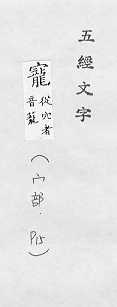 五經文字
寵
從穴者
音籠
(宀部. P15)